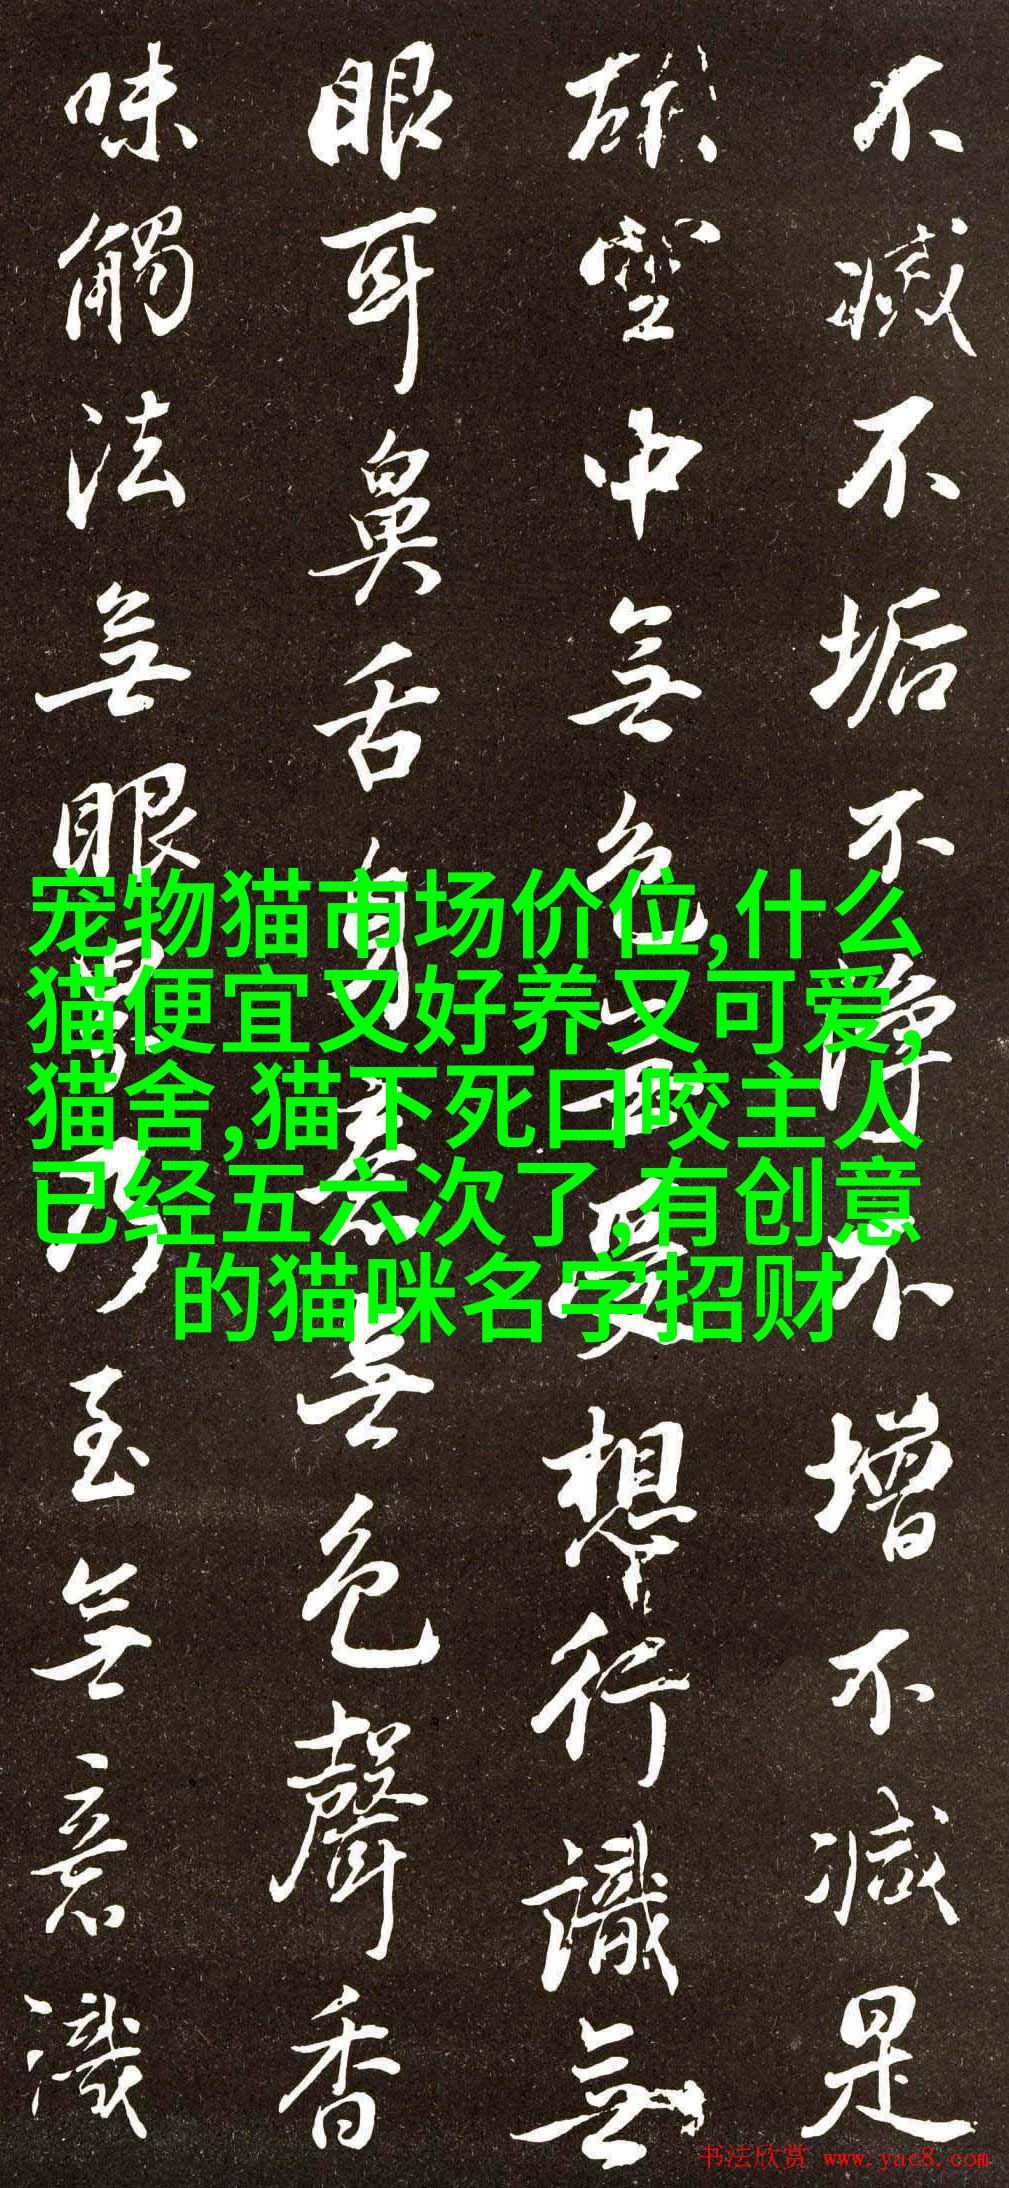 不滅不垢不淨不增不減是
故空中無色無受想行識無
眼耳鼻舌身意無色聲香
味觸法無眼界乃至無意識
宠物猫市场价位,什么
猫便宜又好养又可爱,
猫舍,猫下死口咬主人
已经五六次了,有创意
的猫咪名字招财
书法欣赏 www.yac8.com